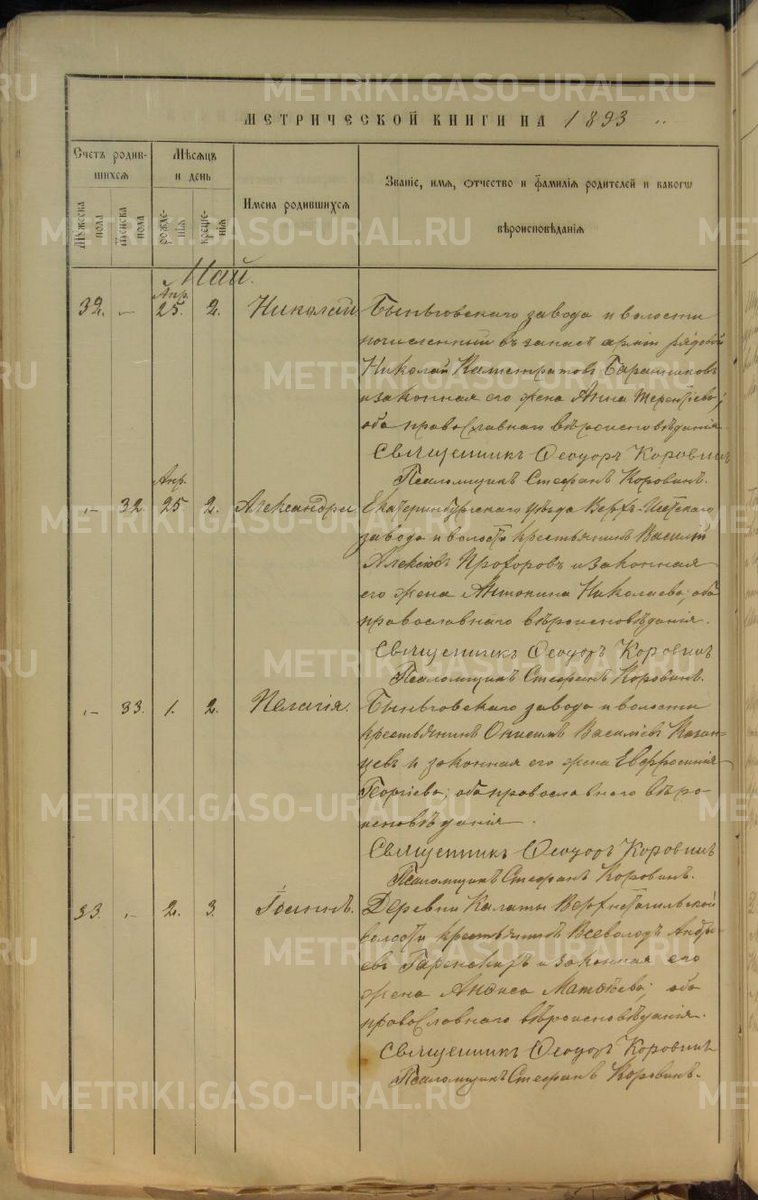 METRIKI.GASO-URAL.RU
МЕТРИЧЕСКОЙ КНИГИ НА 1893
Счетъ родив-
шихся
Мѣсяцъ
и день
Имена родившихся
Званіе, имя, отчество и фамилія родителей и какого
вѣроисповѣданія
Мужеска
пола
Женска
пола
рожде-
нія
креще-
нія
Май.
32. — Апр. 25. 2. Николай
Быньговскаго завода и волости
починенный въ запасъ арміи рядовой
Николай Калистратовъ Баранниковъ
и законная его жена Анна Терентіева;
оба православнаго вѣроисповѣданія
Священникъ Ѳеодоръ Коровинъ
Псаломщикъ Стефанъ Коровинъ.
— 32. Апр. 25 2. Александра
Екатеринбургскаго уѣзда Верхъ-Исетскаго
завода и волости крестьянинъ Василій
Алексіевъ Прохоровъ и законная
его жена Антонина Николаева; оба
православнаго вѣроисповѣданія.
Священникъ Ѳеодоръ Коровинъ
Псаломщикъ Стефанъ Коровинъ.
— 33. 1. 2. Пелагія.
Быньговскаго завода и волости
крестьянинъ Онисимъ Василіевъ Казан-
цевъ и законная его жена Евфросинія
Георгіева; оба православнаго вѣро-
исповѣданія.
Священникъ Ѳеодоръ Коровинъ
Псаломщикъ Стефанъ Коровинъ.
33. — 2. 3. Іоаннъ.
Деревни Калаты Верхнетагильской
волости крестьянинъ Всеволодъ Андре-
евъ и законная его
жена Матѳіева; оба
православнаго вѣроисповѣданія.
Священникъ Ѳеодоръ Коровинъ
Псаломщикъ Стефанъ Коровинъ.